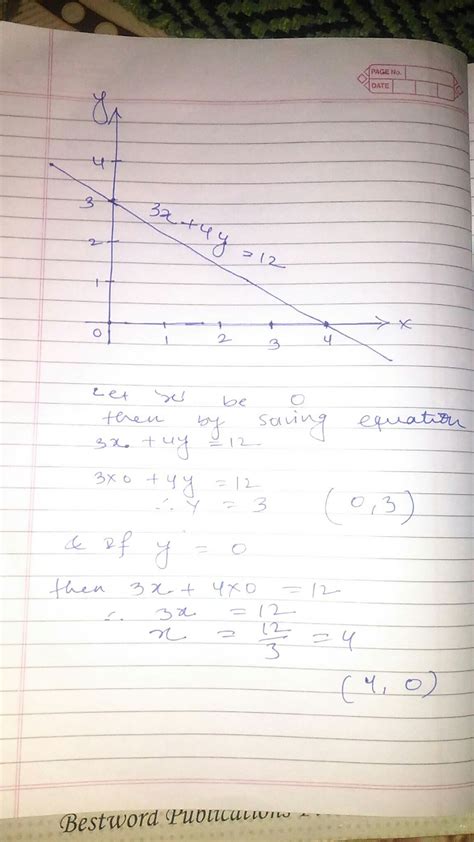 PAGE No.
DATE
y
4
3
3x + 4y = 12
2
1
0 1 2 3 4 x
Let x be 0
then by saving equation
3x + 4y = 12
3x0 + 4y = 12
∴ y = 3 (0,3)
& If y = 0
then 3x + 4x0 = 12
∴ 3x = 12
x = 12/3 = 4
(4, 0)
Bestword Publications